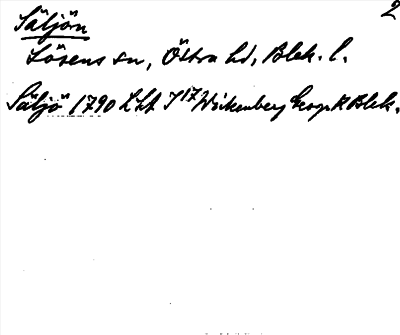 2
Säljön
Lösens sn, Östra hd, Blek. l.
Säljö 1790 LSA J17 Wikenberg Geogr K Blek.